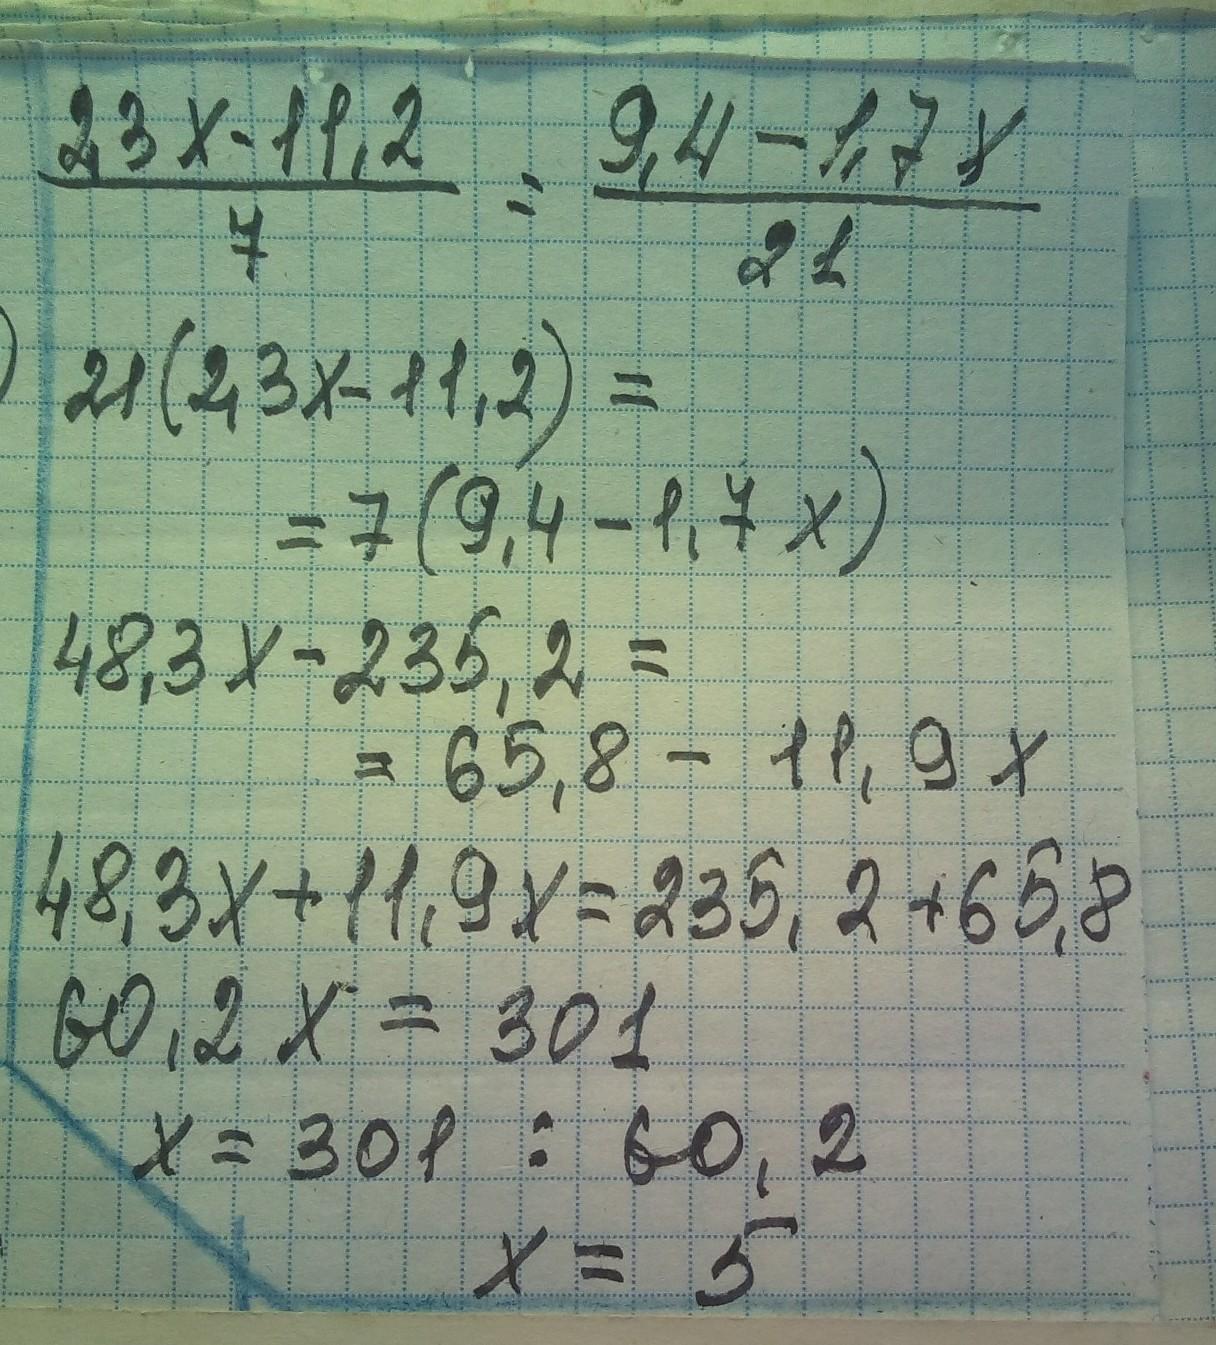 2,3x-11,2 / 7 = 9,4-1,7x / 21
21(2,3x-11,2)=
=7(9,4-1,7x)
48,3x-235,2=
=65,8-11,9x
48,3x+11,9x=235,2+65,8
60,2x=301
x=301:60,2
x=5